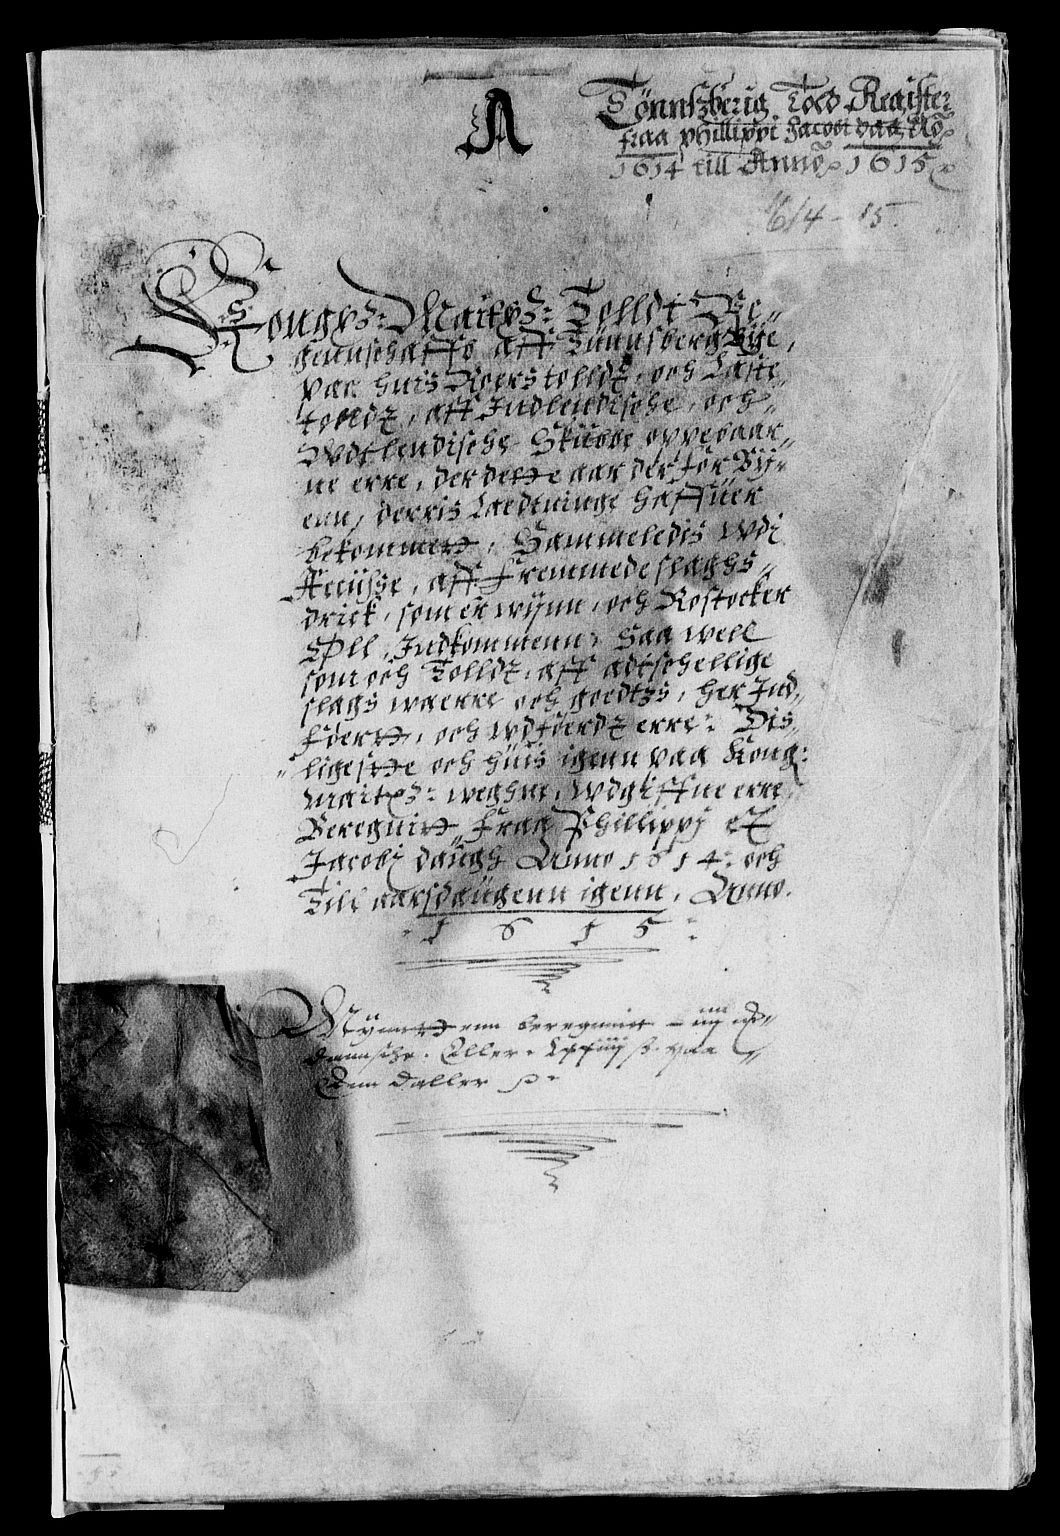 A
Tönnszberig Told Register
fraa phillippi Jacobi paa
1614 till Anno 1615
1614 - 15.
Kongs: Maitz: Tolldt Re-
gennschaffs aff Tünnsberg Bÿe,
paa huis Roerstolldt, och Laste-
tolldt, aff Indlendische, och
Wdtlendische Skübbe oppebaar-
ne erre, der dette aar der for Bÿ-
enn, derris Laedtninge haffuer
bekommett, Sammeledis wdj
Acciisse, aff fremmede slaghs
drick, som er wÿnn, och Rostocker
Øll, Indkommenn, Saa well
som och Tolldt, aff adtschellige
slags waerre och goedtzs, her Ind-
föertt, och wdföerdt erre: Dis-
ligeste och huis igenn paa Kong:
Maitz: weghne, wdgiffne erre
Beregnitt fraa Phillippj et
Jacobj daugh Anno 1614: och
Till aarsdaugenn igenn, Anno.
1615
Mÿnntt enn beregnnit
Dannsche. Eller paa
Enn daller